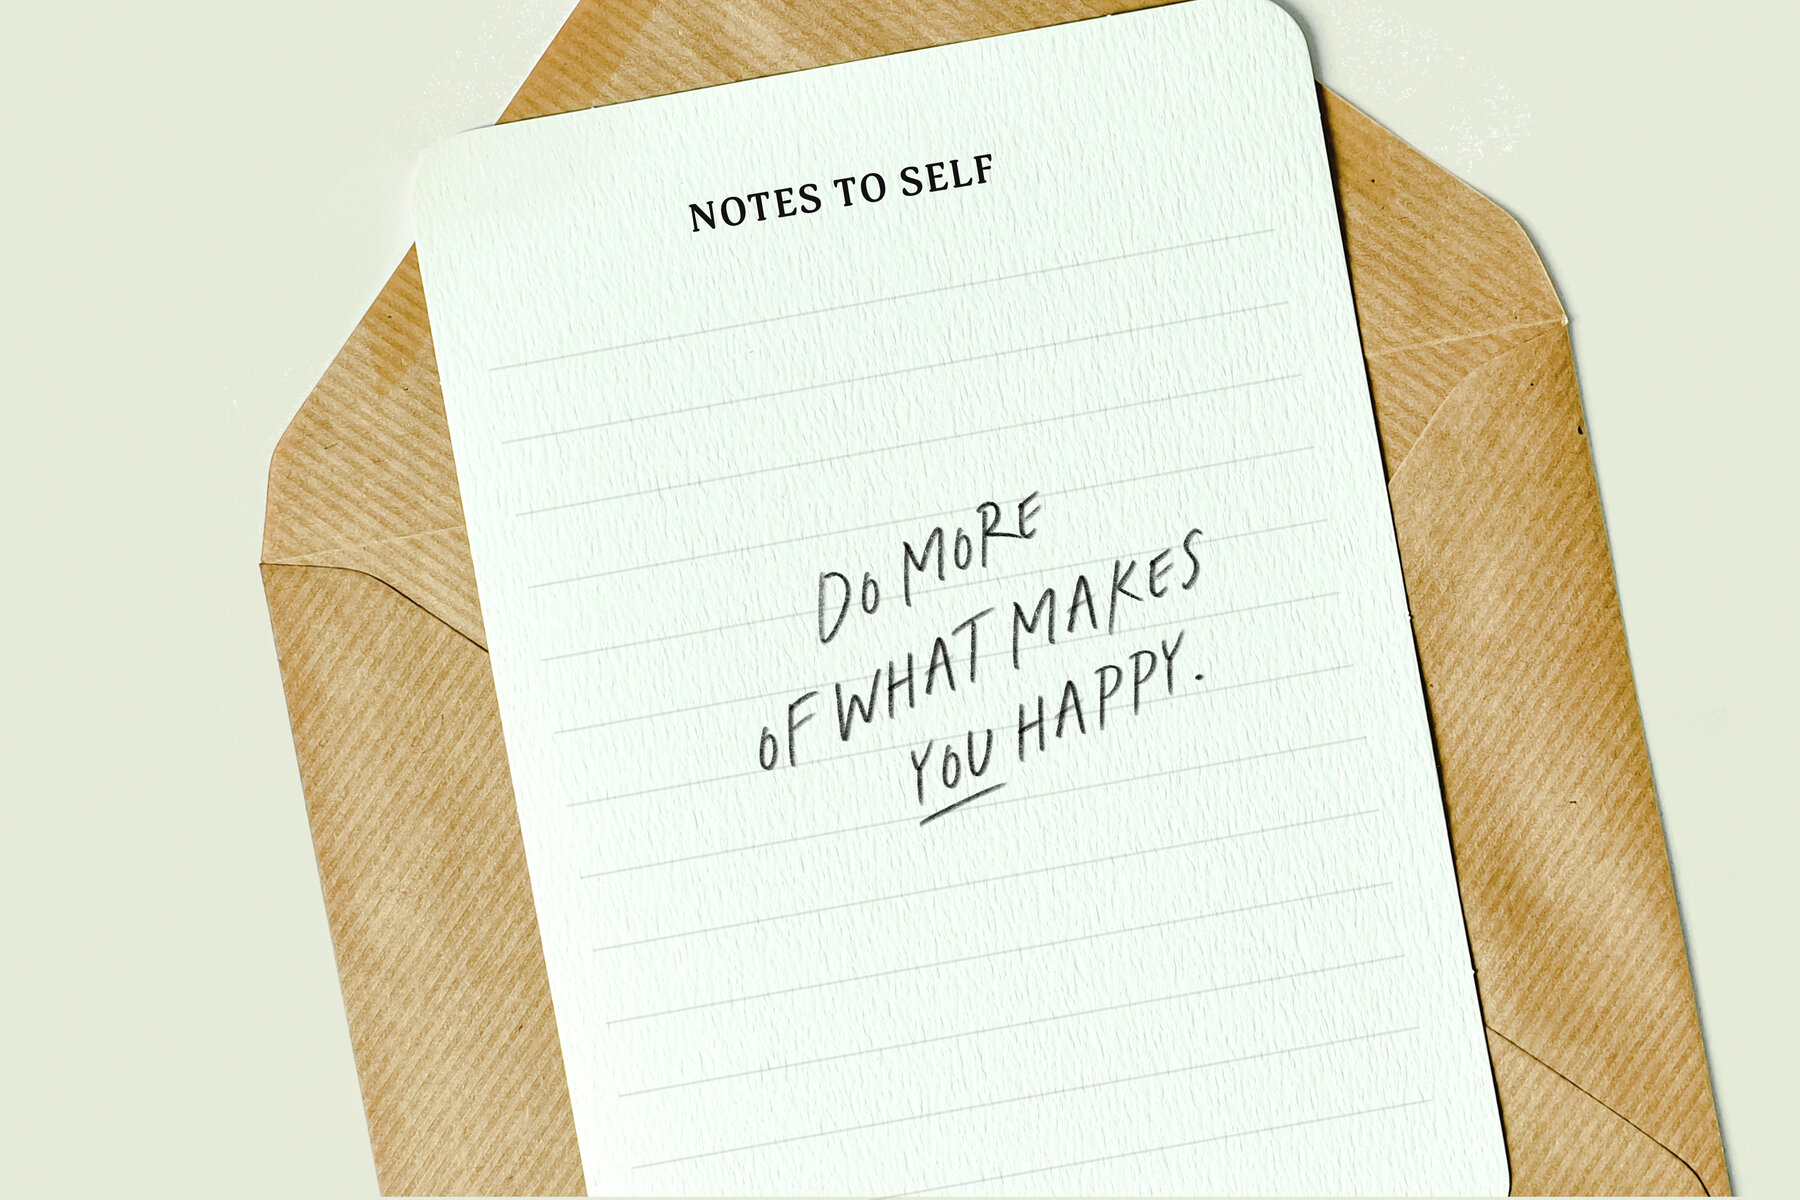 NOTES TO SELF
DO MORE
OF WHAT MAKES
YOU HAPPY.